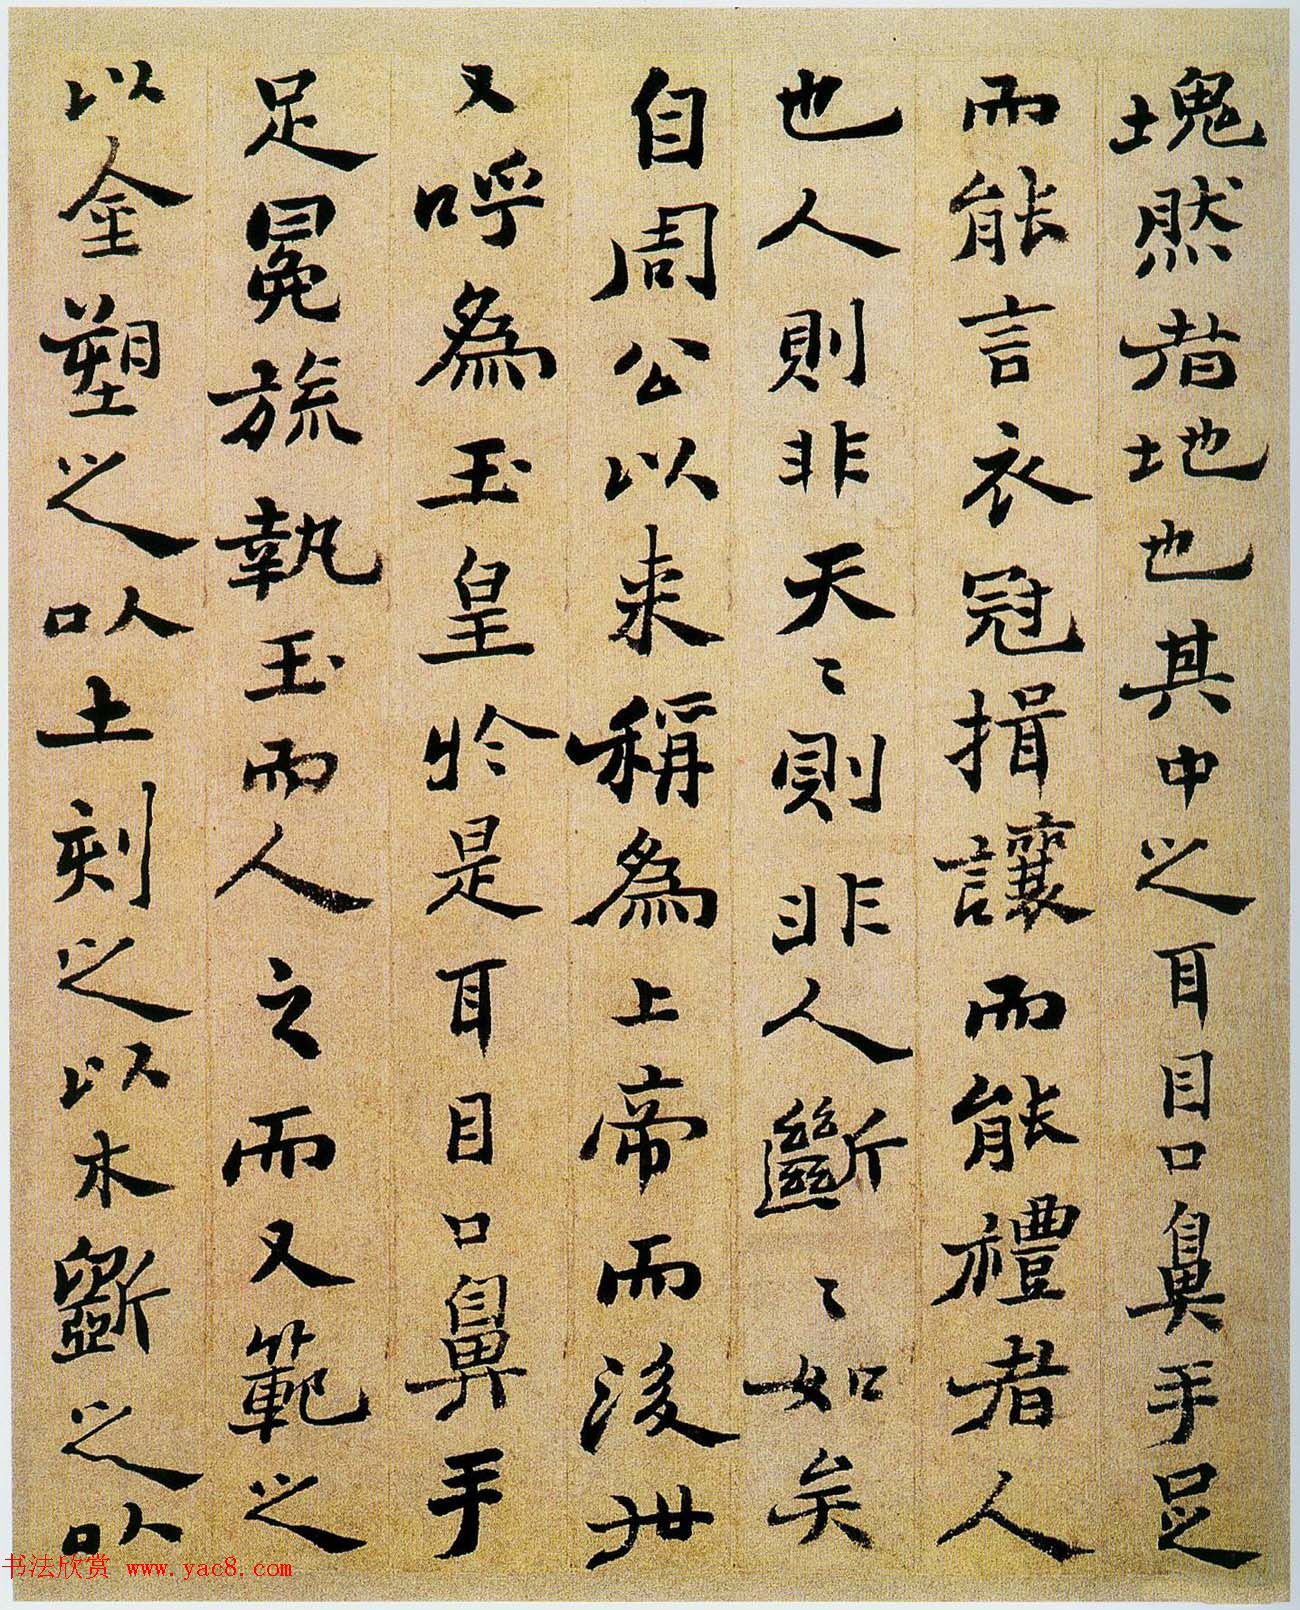 塊然者地也其中之耳目口鼻手足
而能言衣冠揖讓而能禮者人
也人則非天〻則非人斷〻如矣
自周公以来稱為上帝而後世
又呼為玉皇於是耳目口鼻手
足冕旒執玉而人之而又範之
以金塑之以土刻之以木斵之以
书法欣赏 www.yac8.com